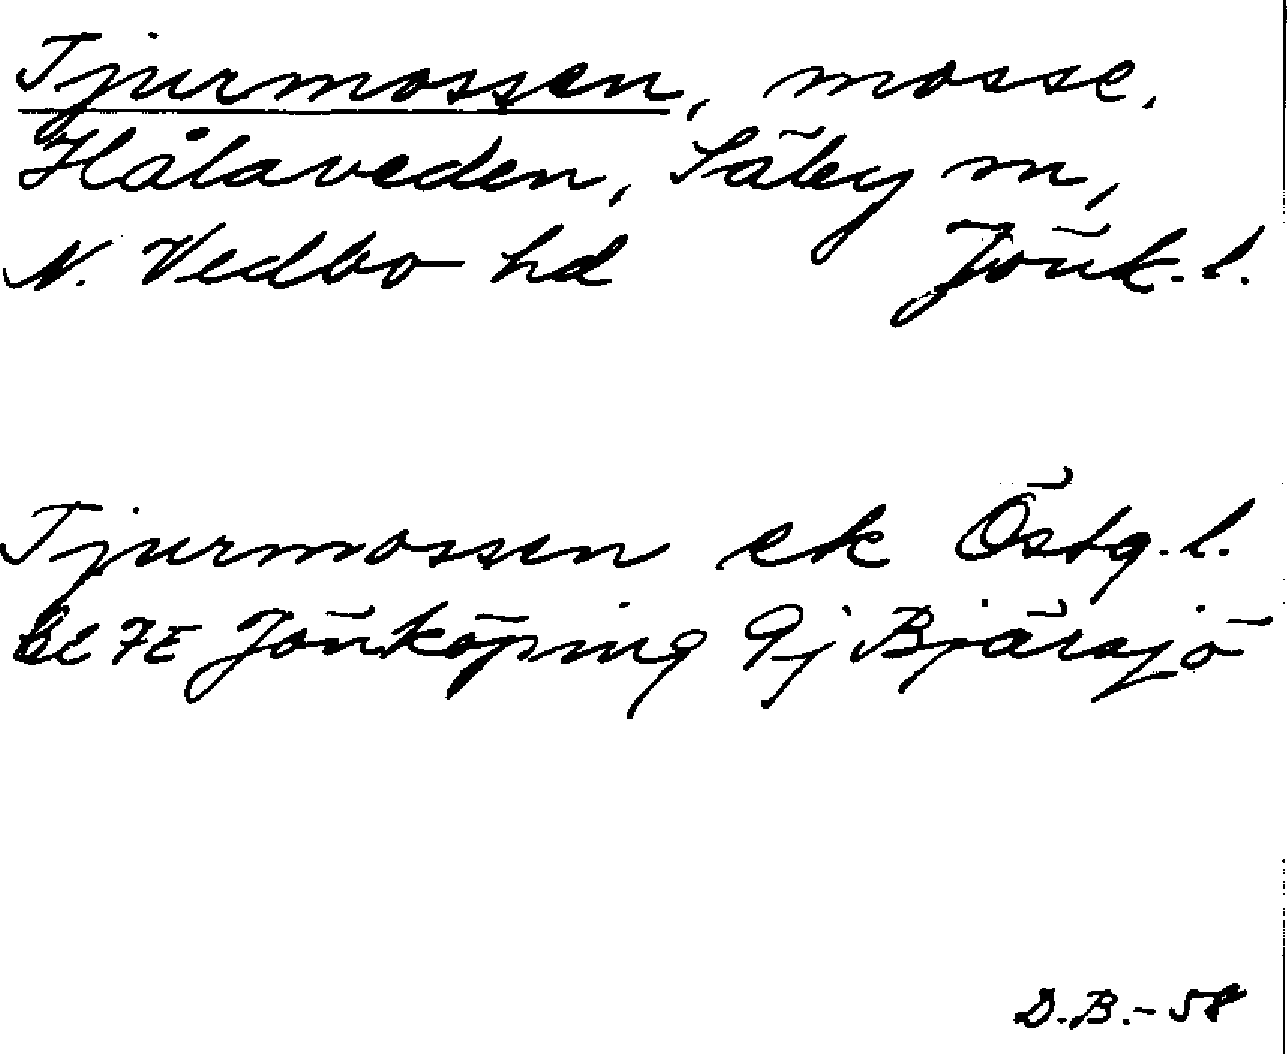 Tjurmossen, mosse.
Hålaveden, Säby sn,
N. Vedbo hd Jönk. l.
Tjurmossen ek Östg. l.
bl 7E Jönköping 9j Bjärsjö
D.B.-58